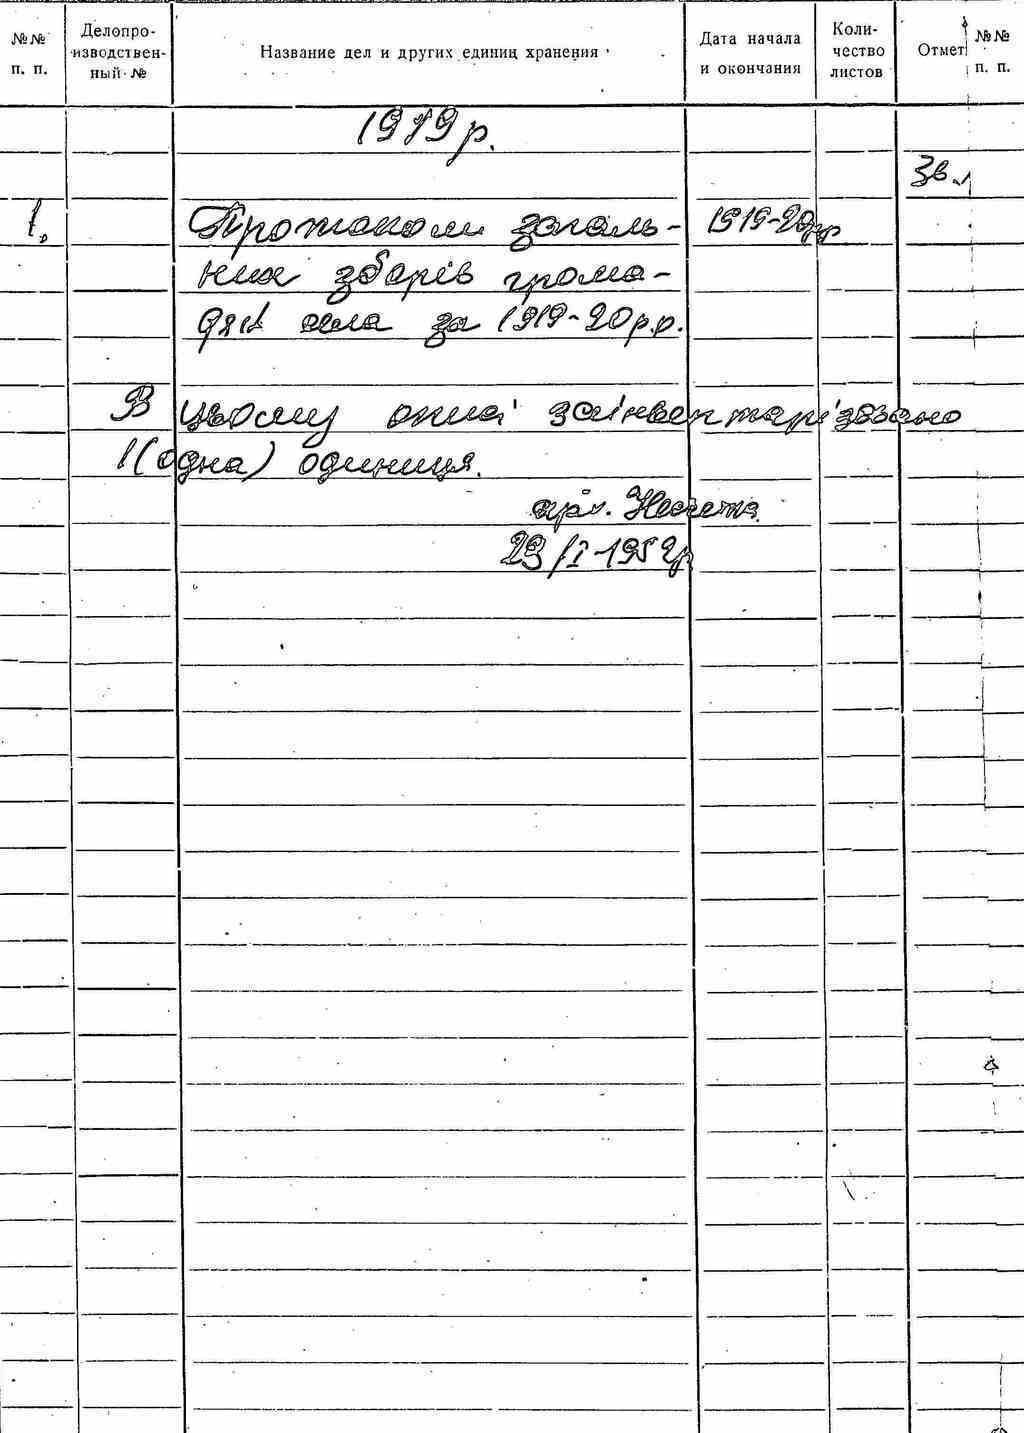 №№ п. п.
Делопро-
изводствен-
ный №
Название дел и других единиц хранения
Дата начала
и окончания
Коли-
чество
листов
Отмет
№№
п. п.
1919 р.
Зв.
1. Протоколи загаль- 1919-20рр
них зборів грома-
дян села за 1919-20 р.р.
В цьому описі заінвентарізовано
1 (одна) одиниця.
арх.
23/I-1952р